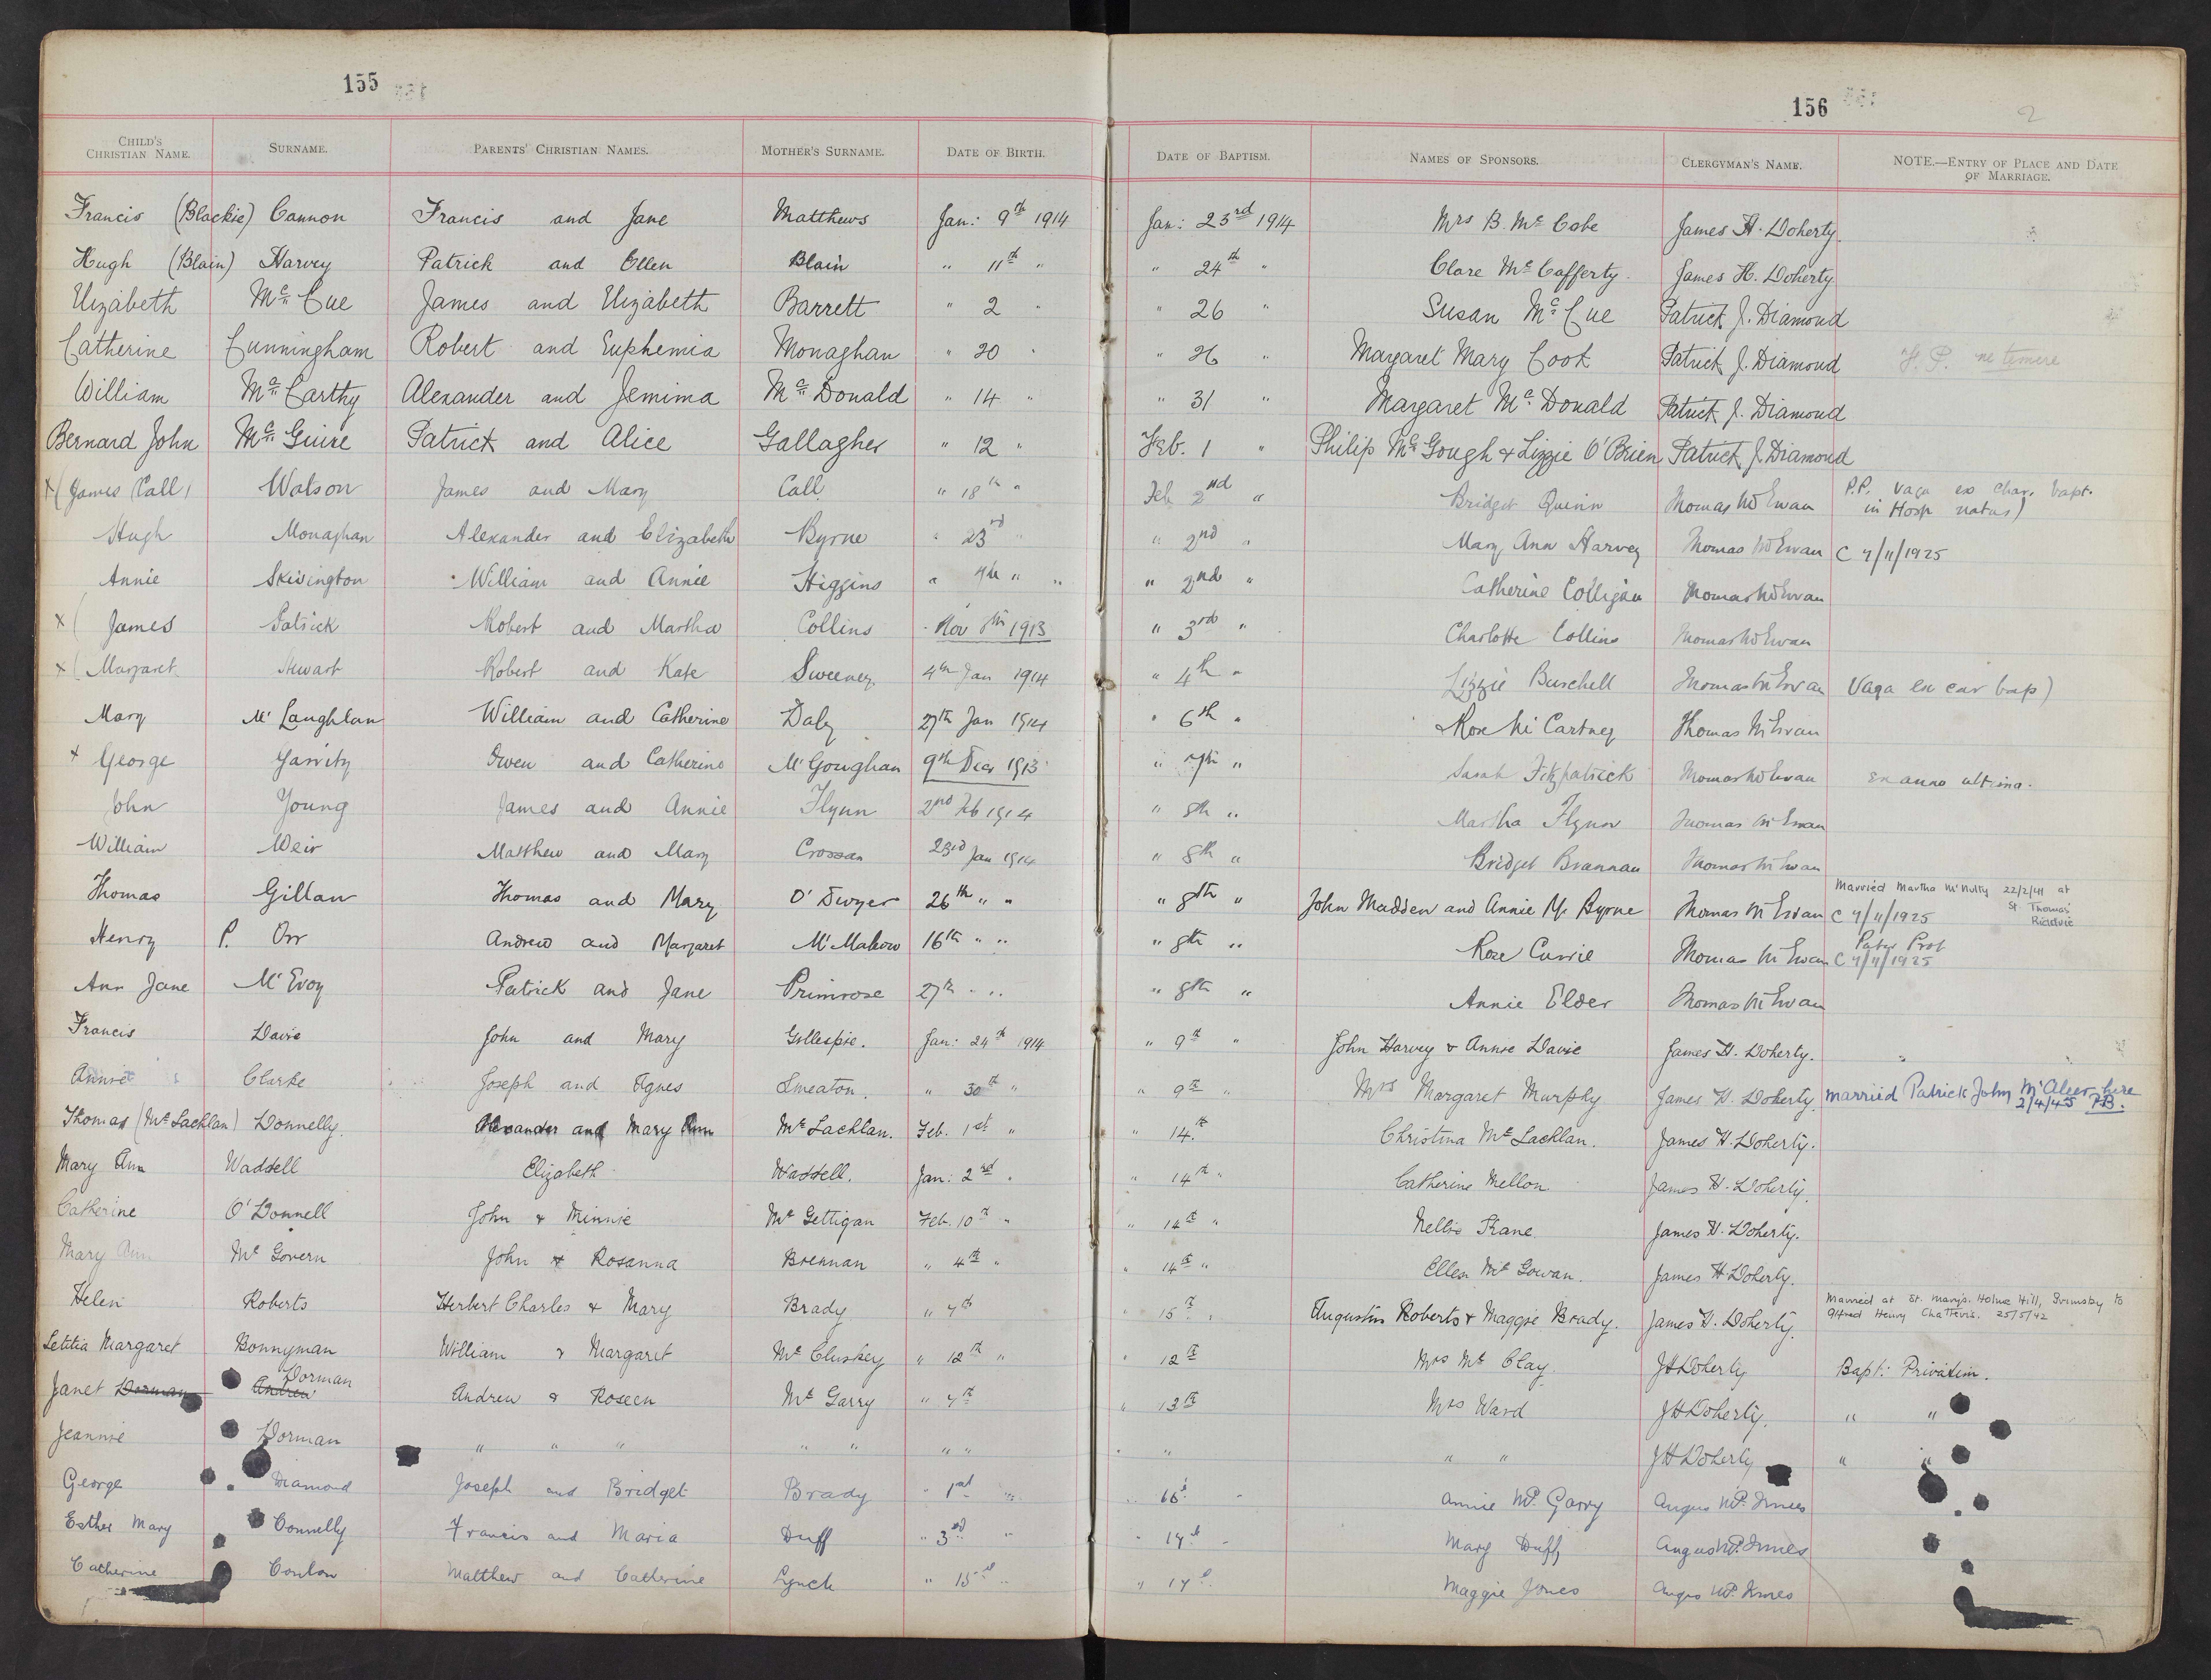 155
156
2
CHILD'S CHRISTIAN NAME. SURNAME. PARENTS' CHRISTIAN NAMES. MOTHER'S SURNAME. DATE OF BIRTH. DATE OF BAPTISM. NAMES OF SPONSORS. CLERGYMAN'S NAME. NOTE.—ENTRY OF PLACE AND DATE OF MARRIAGE.
Francis (Blackie) Cannon Francis and Jane Matthews Jan: 9th 1914 Jan: 23rd 1914 Mrs B. Mc Cabe James H. Doherty.
Hugh (Blain) Harvey Patrick and Ellen Blain " 11th " " 24th " Clare Mc Cafferty. James H. Doherty
Elizabeth Mc Cue James and Elizabeth Barrett " 2 " " 26 " Susan Mc Cue Patrick J. Diamond
Catherine Cunningham Robert and Euphemia Monaghan " 20 " " 26 " Margaret Mary Cook Patrick J. Diamond ne temere
William Mc Carthy Alexander and Jemima Mc Donald " 14 " " 31 " Margaret Mc Donald Patrick J. Diamond
Bernard John Mc Guire Patrick and Alice Gallagher " 12 " Feb. 1 " Philip Mc Gough & Lizzie O'Brien Patrick J. Diamond
x (James (Call) Watson James and Mary Call " 18th " Feb 2nd " Bridget Quinn Thomas McEwan P.P. vaga ex char. bapt. in Hosp natus)
Hugh Monaghan Alexander and Elizabeth Byrne " 23rd " " 2nd " Mary Ann Harvey Thomas McEwan C 4/11/1925
Annie Skivington William and Annie Higgins " 4th " " " 2nd " Catherine Colligan Thomas McEwan
x ( James Patrick Robert and Martha Collins Nov 8th 1913 " 3rd " Charlotte Collins Thomas McEwan
x ( Margaret Stewart Robert and Kate Sweeney 4th Jan 1914 " 4th " Lizzie Burchell Thomas McEwan Vaga ex car bap)
Mary Mc Laughlan William and Catherine Daly 27th Jan 1914 " 6th " Rose Mc Cartney Thomas McEwan
x George Garrity Owen and Catherine Mc Goughan 9th Dec 1913 " 7th " Sarah Fitzpatrick Thomas McEwan ex anno
John Young James and Annie Flynn 2nd Feb 1914 " 8th " Martha Flynn Thomas McEwan
William Weir Matthew and Mary Crossan 23rd Jan 1914 " 8th " Bridget Brannan Thomas McEwan
Thomas Gillan Thomas and Mary O'Dwyer 26th " " " 8th " John Madden and Annie Mc Byrne Thomas McEwan C 4/11/1925 Married Martha McNulty 22/2/41 at St Thomas' Riddrie
Henry P. Orr Andrew and Margaret Mc Mahon 16th " " " 8th " Rose Currie Thomas McEwan Pater Prot C 4/11/1925
Ann Jane Mc Evoy Patrick and Jane Primrose 27th " " " 8th " Annie Elder Thomas McEwan
Francis Davie John and Mary Gillespie. Jan: 24th 1914 " 9th " John Harvey & Annie Davie James H. Doherty.
Annie Clarke Joseph and Agnes Smeaton. " 30th " " 9th " Mrs Margaret Murphy James H. Doherty. married Patrick John McAleer here 2/4/45 P.B.
Thomas (Mc Lachlan) Donnelly. Alexander and Mary Ann Mc Lachlan. Feb. 1st " " 14th Christina Mc Lachlan. James H. Doherty.
Mary Ann Waddell Elizabeth Waddell. Jan: 2nd " " 14th " Catherine Mellon. James H. Doherty.
Catherine O'Donnell John & Minnie Mc Gettigan Feb. 10th " " 14th " Nellie Kane. James H. Doherty.
Mary Ann Mc Govern John & Rosanna Brennan " 4th " " 14th " Ellen Mc Gowan. James H Doherty.
Helen Roberts Herbert Charles & Mary Brady " 7th " 15th " Augustus Roberts & Maggie Brady. James H. Doherty. Married at St. Mary's. Holme Hill, Grimsby to Alfred Henry Chatteris. 25/5/42
Letitia Margaret Bonnyman William & Margaret Mc Cluskey " 12th " " 12th Mrs Mc Clay. JH Doherty Bapt: Privatim.
Janet Dorman Andrew Dorman Andrew & Roseen Mc Garry " 7th " 13th Mrs Ward JH Doherty. " "
Jeannie Dorman " " " " " " " " " " " JH Doherty " "
George Diamond Joseph and Bridget Brady " 1st " " 16th " Annie Mc Garry Angus McInnes
Esther Mary Connelly Francis and Maria Duff " 3rd " " 17th " Mary Duffy Angus McInnes
Catherine Conlon Matthew and Catherine Lynch " 15th " " 17th " Maggie Jones Angus McInnes